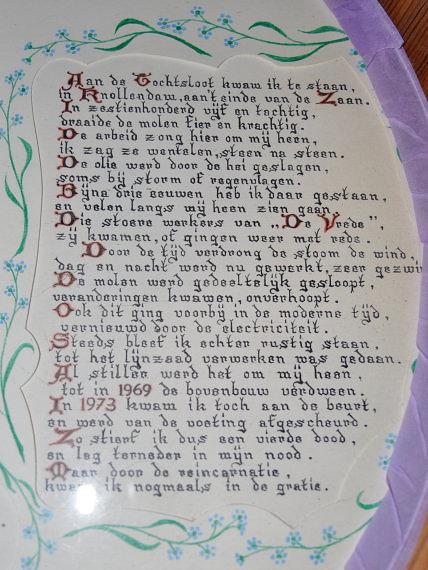 Aan de Tochtsloot kwam ik te staan,
in Knollendam, aan't einde van de Zaan.
In zestienhonderd vijf en tachtig,
draaide de molen fier en krachtig.
De arbeid zong hier om mij heen,
ik zag ze wentelen, steen na steen.
De olie werd door de hei geslagen,
soms bij storm of regenvlagen.
Bijna drie eeuwen heb ik daar gestaan,
en velen langs mij heen zien gaan.
Die stoere werkers van „De Vrede”,
zij kwamen, of gingen weer met rede.
Door de tijd verdrong de stoom de wind,
dag en nacht werd nu gewerkt, zeer gezwin
De molen werd gedeeltelijk gesloopt,
veranderingen kwamen, onverhoopt.
Ook dit ging voorbij in de moderne tijd,
vernieuwd door de electriciteit.
Steeds bleef ik echter rustig staan,
tot het lijnzaad verwerken was gedaan.
Al stiller werd het om mij heen,
tot in 1969 de bovenbouw verdween.
In 1973 kwam ik toch aan de beurt,
en werd van de voeting afgescheurd.
Zo stierf ik dus een vierde dood,
en lag terneder in mijn nood.
Maar door de reincarnatie,
kwam ik nogmaals in de gratie.